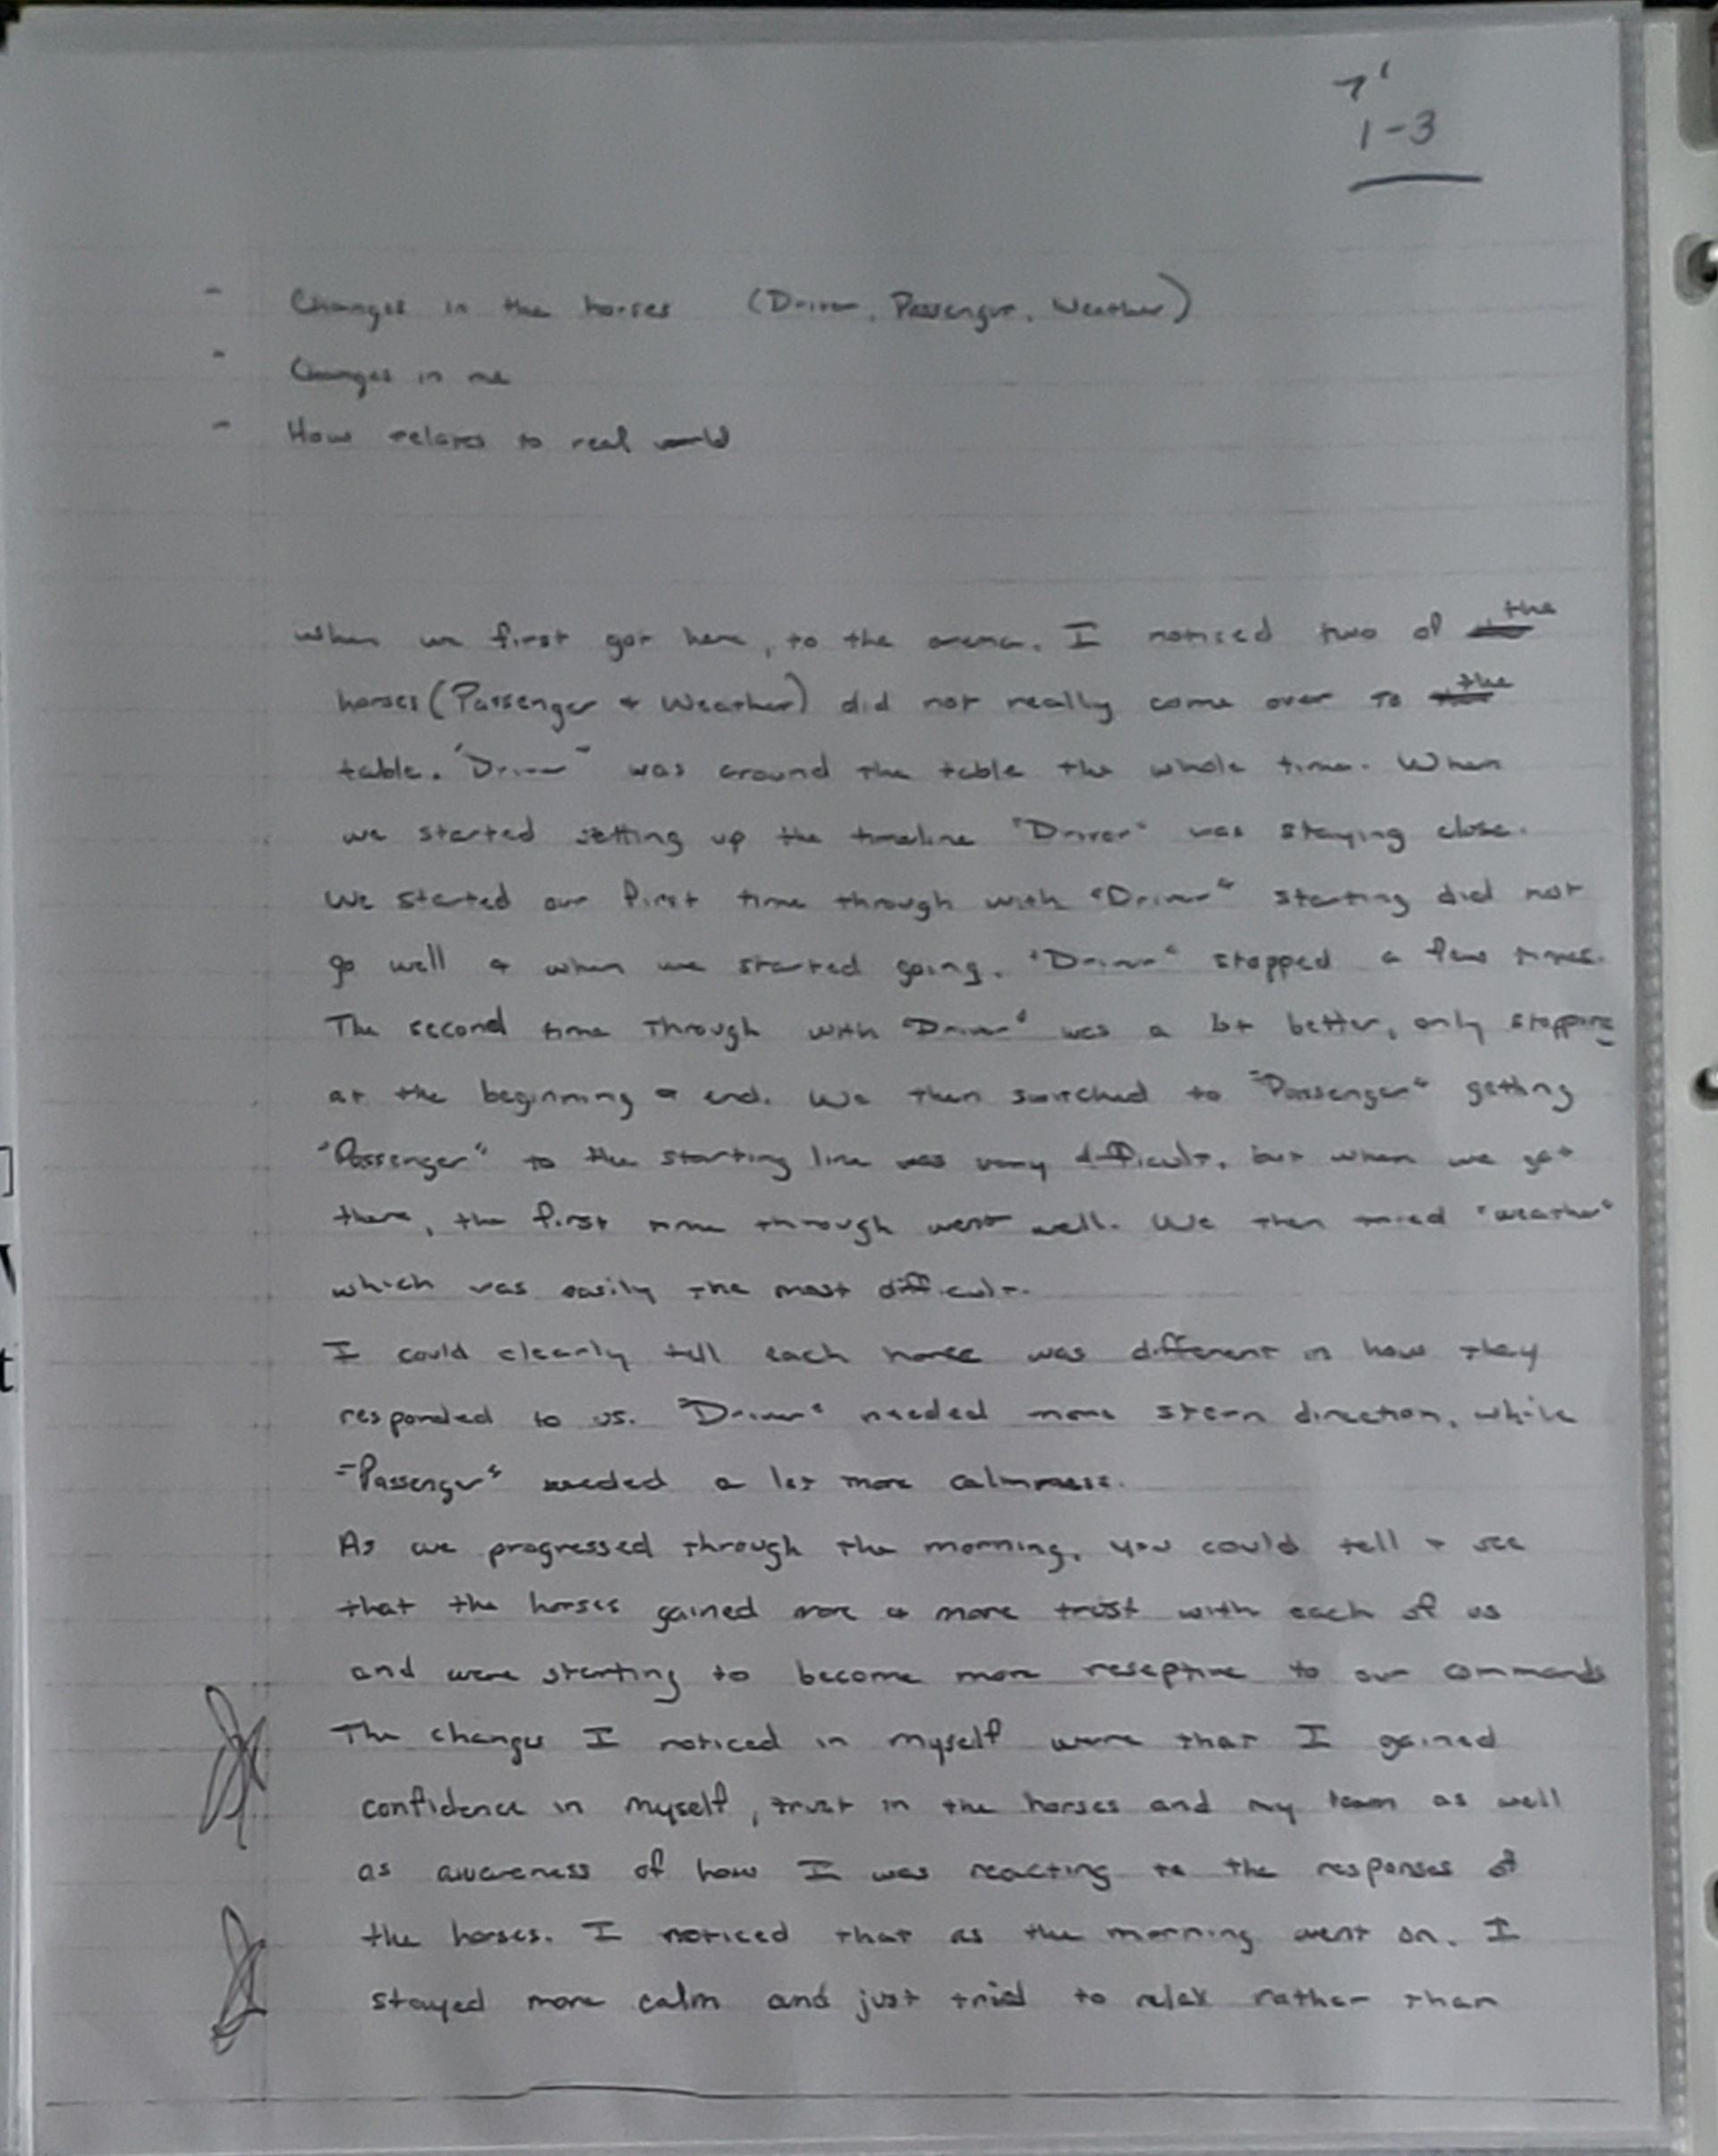 1-3
- Changes in the horses (Driver, Passenger, Weather)
- Changes in me
- How relates to real world
the
When we first got here, to the arena. I noticed two of
the
horses (Passenger + Weather) did not really come over to
table. "Driver" was around the table the whole time. When
we started setting up the timeline "Driver" was staying close.
We started our first time through with "Driver" starting did not
go well + when we started going. "Driver" stopped a few times.
The second time through with "Driver" was a bit better, only stopping
at the beginning + end. We then switched to "Passenger" getting
"Passenger" to the starting line was very difficult, but when we got
there, the first time through went well. We then tried "weather"
which was easily the most difficult.
I could clearly tell each horse was different in how they
responded to us. "Driver" needed more stern direction, while
"Passenger" needed a lot more calmness.
As we progressed through the morning, you could tell + see
that the horses gained more + more trust with each of us
and were starting to become more reseptive to our commands
The changes I noticed in myself were that I gained
confidence in myself, trust in the horses and my team as well
as awareness of how I was reacting to the responses of
the horses. I noticed that as the morning went on. I
stayed more calm and just tried to relax rather than